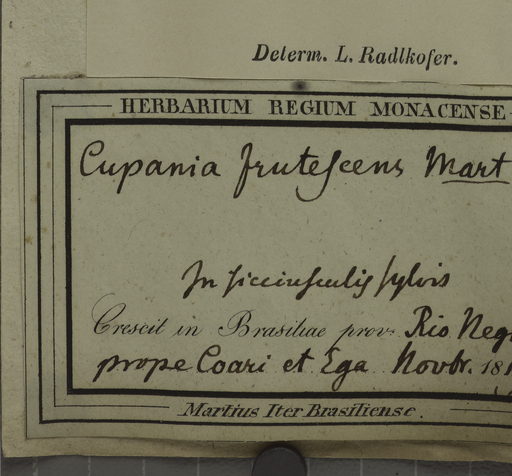 Determ. L. Radlkofer.
HERBARIUM REGIUM MONACENSE
Cupania frutescens Mart
In sicciusculis sylvis
Crescit in Brasiliae prov. Rio Neg
prope Coari et Ega Novbr. 181
Martius Iter Brasiliense.